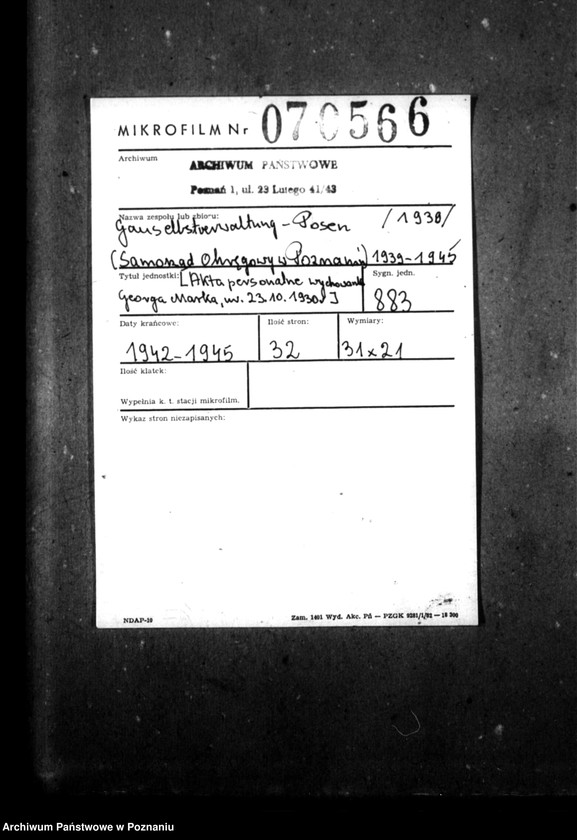 MIKROFILM Nr 070566
Archiwum
ARCHIWUM PAŃSTWOWE
Poznań 1, ul. 23 Lutego 41/43
Nazwa zespołu lub zbioru:
Gauselbstverwaltung - Posen /1938/
(Samorząd Okręgowy w Poznaniu) 1939-1945
Tytuł jednostki: [Akta personalne wychowanka
Georga Marka, ur. 23.10.1930r]
Sygn. jedn.
883
Daty krańcowe:
1942-1945
Ilość stron:
32
Wymiary:
31x21
Ilość klatek:
Wypełnia k. t. stacji mikrofilm.
Wykaz stron niezapisanych:
NDAP-10
Zam. 1401 Wyd. Akc. Pń — PZGK
Archiwum Państwowe w Poznaniu